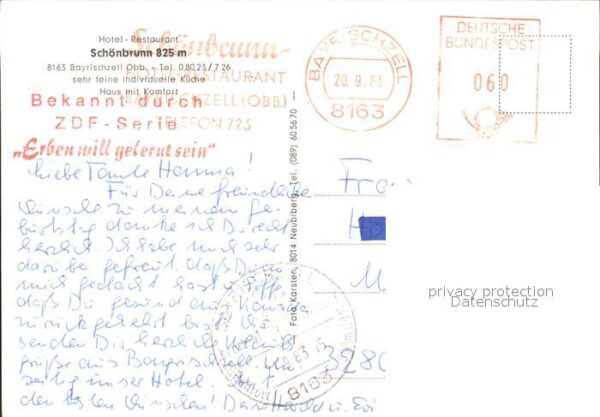 Hotel - Restaurant
Schönbrunn 825 m
8163 Bayrischzell Obb. - Tel. 08023/726
sehr feine individuelle Küche
Haus mit Komfort
Schönbrunn
RESTAURANT
BAYRISCHZELL (OBB.)
TELEFON 726
Bekannt durch
ZDF - Serie
„Erben will gelernt sein"
BAYRISCHZELL
20.9.83
8163
DEUTSCHE
BUNDESPOST
060
Liebe Tante Hanna!
Für Deine freundliche
Wünsche zu meinem Ge-
burtstag danke ich Dir recht
herzlich. Ich habe mich sehr
darüber gefreut, daß Du an
mich gedacht hast u. hoffe,
daß Du gesund aus
zurückgekehrt bist. Ich
senden Dir herzliche
grüße aus Bayrischzell.
unser Hotel. Mit
den besten Wünschen! Deine
Foto Karsten, 8014 Neubiberg, Tel. (089) 60 56 70
Frau
H
M
3280
83
8163
privacy protection
Datenschutz